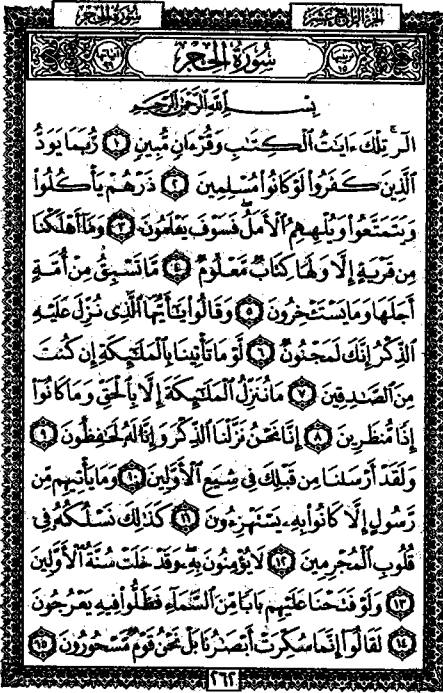 سُورَةُ الحِجْرِ
الجُزءُ الرَّابِعَ عَشَرَ
سُورَةُ الحِجْرِ
بِسْمِ اللَّهِ الرَّحْمَٰنِ الرَّحِيمِ
الٓرۚ تِلْكَ ءَايَٰتُ ٱلْكِتَٰبِ وَقُرْءَانٍ مُّبِينٍ ١ رُّبَمَا يَوَدُّ
ٱلَّذِينَ كَفَرُوا۟ لَوْ كَانُوا۟ مُسْلِمِينَ ٢ ذَرْهُمْ يَأْكُلُوا۟
وَيَتَمَتَّعُوا۟ وَيُلْهِهِمُ ٱلْأَمَلُۖ فَسَوْفَ يَعْلَمُونَ ٣ وَمَآ أَهْلَكْنَا
مِن قَرْيَةٍ إِلَّا وَلَهَا كِتَابٌ مَّعْلُومٌ ٤ مَّا تَسْبِقُ مِنْ أُمَّةٍ
أَجَلَهَا وَمَا يَسْتَـْٔخِرُونَ ٥ وَقَالُوا۟ يَٰٓأَيُّهَا ٱلَّذِى نُزِّلَ عَلَيْهِ
ٱلذِّكْرُ إِنَّكَ لَمَجْنُونٌ ٦ لَّوْ مَا تَأْتِينَا بِٱلْمَلَٰٓئِكَةِ إِن كُنتَ
مِنَ ٱلصَّٰدِقِينَ ٧ مَا نُنَزِّلُ ٱلْمَلَٰٓئِكَةَ إِلَّا بِٱلْحَقِّ وَمَا كَانُوٓا۟
إِذًا مُّنظَرِينَ ٨ إِنَّا نَحْنُ نَزَّلْنَا ٱلذِّكْرَ وَإِنَّا لَهُۥ لَحَٰفِظُونَ ٩
وَلَقَدْ أَرْسَلْنَا مِن قَبْلِكَ فِى شِيَعِ ٱلْأَوَّلِينَ ١٠ وَمَا يَأْتِيهِم مِّن
رَّسُولٍ إِلَّا كَانُوا۟ بِهِۦ يَسْتَهْزِءُونَ ١١ كَذَٰلِكَ نَسْلُكُهُۥ فِى
قُلُوبِ ٱلْمُجْرِمِينَ ١٢ لَا يُؤْمِنُونَ بِهِۦۖ وَقَدْ خَلَتْ سُنَّةُ ٱلْأَوَّلِينَ
١٣ وَلَوْ فَتَحْنَا عَلَيْهِم بَابًا مِّنَ ٱلسَّمَآءِ فَظَلُّوا۟ فِيهِ يَعْرُجُونَ
١٤ لَقَالُوٓا۟ إِنَّمَا سُكِّرَتْ أَبْصَٰرُنَا بَلْ نَحْنُ قَوْمٌ مَّسْحُورُونَ ١٥
٢٦٢